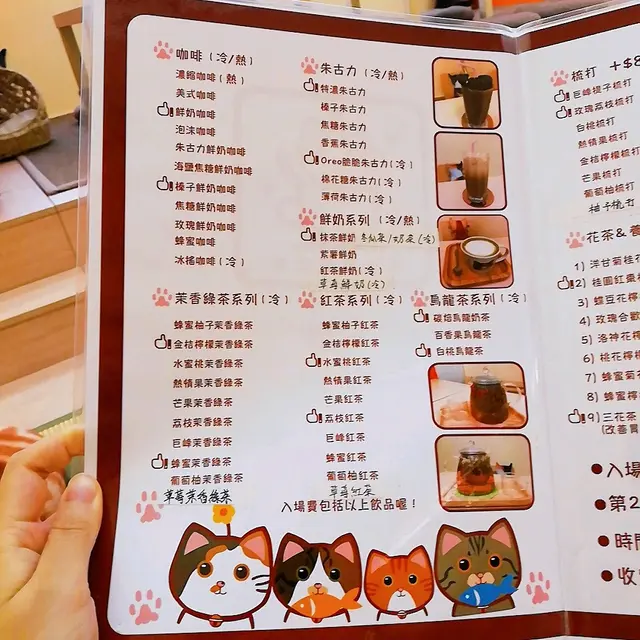 咖啡(冷/熱)
濃縮咖啡(熱)
美式咖啡
鮮奶咖啡
泡沫咖啡
朱古力鮮奶咖啡
海鹽焦糖鮮奶咖啡
榛子鮮奶咖啡
焦糖鮮奶咖啡
玫瑰鮮奶咖啡
蜂蜜咖啡
冰搖咖啡(冷)
朱古力(冷/熱)
特濃朱古力
榛子朱古力
焦糖朱古力
香蕉朱古力
Oreo脆脆朱古力(冷)
棉花糖朱古力(冷)
薄荷朱古力(冷)
鮮奶系列(冷/熱)
抹茶鮮奶 冬瓜茶/奶茶(冷)
紫薯鮮奶
紅茶鮮奶(冷)
草莓鮮奶(冷)
茉香綠茶系列(冷)
蜂蜜柚子茉香綠茶
金桔檸檬茉香綠茶
水蜜桃茉香綠茶
熱情果茉香綠茶
芒果茉香綠茶
荔枝茉香綠茶
巨峰茉香綠茶
蜂蜜茉香綠茶
葡萄柚茉香綠茶
草莓茉香綠茶
紅茶系列(冷)
蜂蜜柚子紅茶
金桔檸檬紅茶
水蜜桃紅茶
熱情果紅茶
芒果紅茶
荔枝紅茶
巨峰紅茶
蜂蜜紅茶
葡萄柚紅茶
草莓紅茶
烏龍茶系列(冷)
碳焙烏龍奶茶
百香果烏龍茶
白桃烏龍茶
入場費包括以上飲品喔!
梳打 +$8
巨峰提子梳打
玫瑰荔枝梳打
白桃梳打
熱情果梳打
金桔檸檬梳打
芒果梳打
葡萄柚梳打
柚子梳打
花茶&養
1) 洋甘菊桂花
2) 桂圓紅棗
3) 蝶豆花
4) 玫瑰合歡
5) 洛神花
6) 桃花檸
7) 蜜蜂菊
8) 蜂蜜檸
9) 三花茶
(改善胃
●入場
●第2
●時間
●收